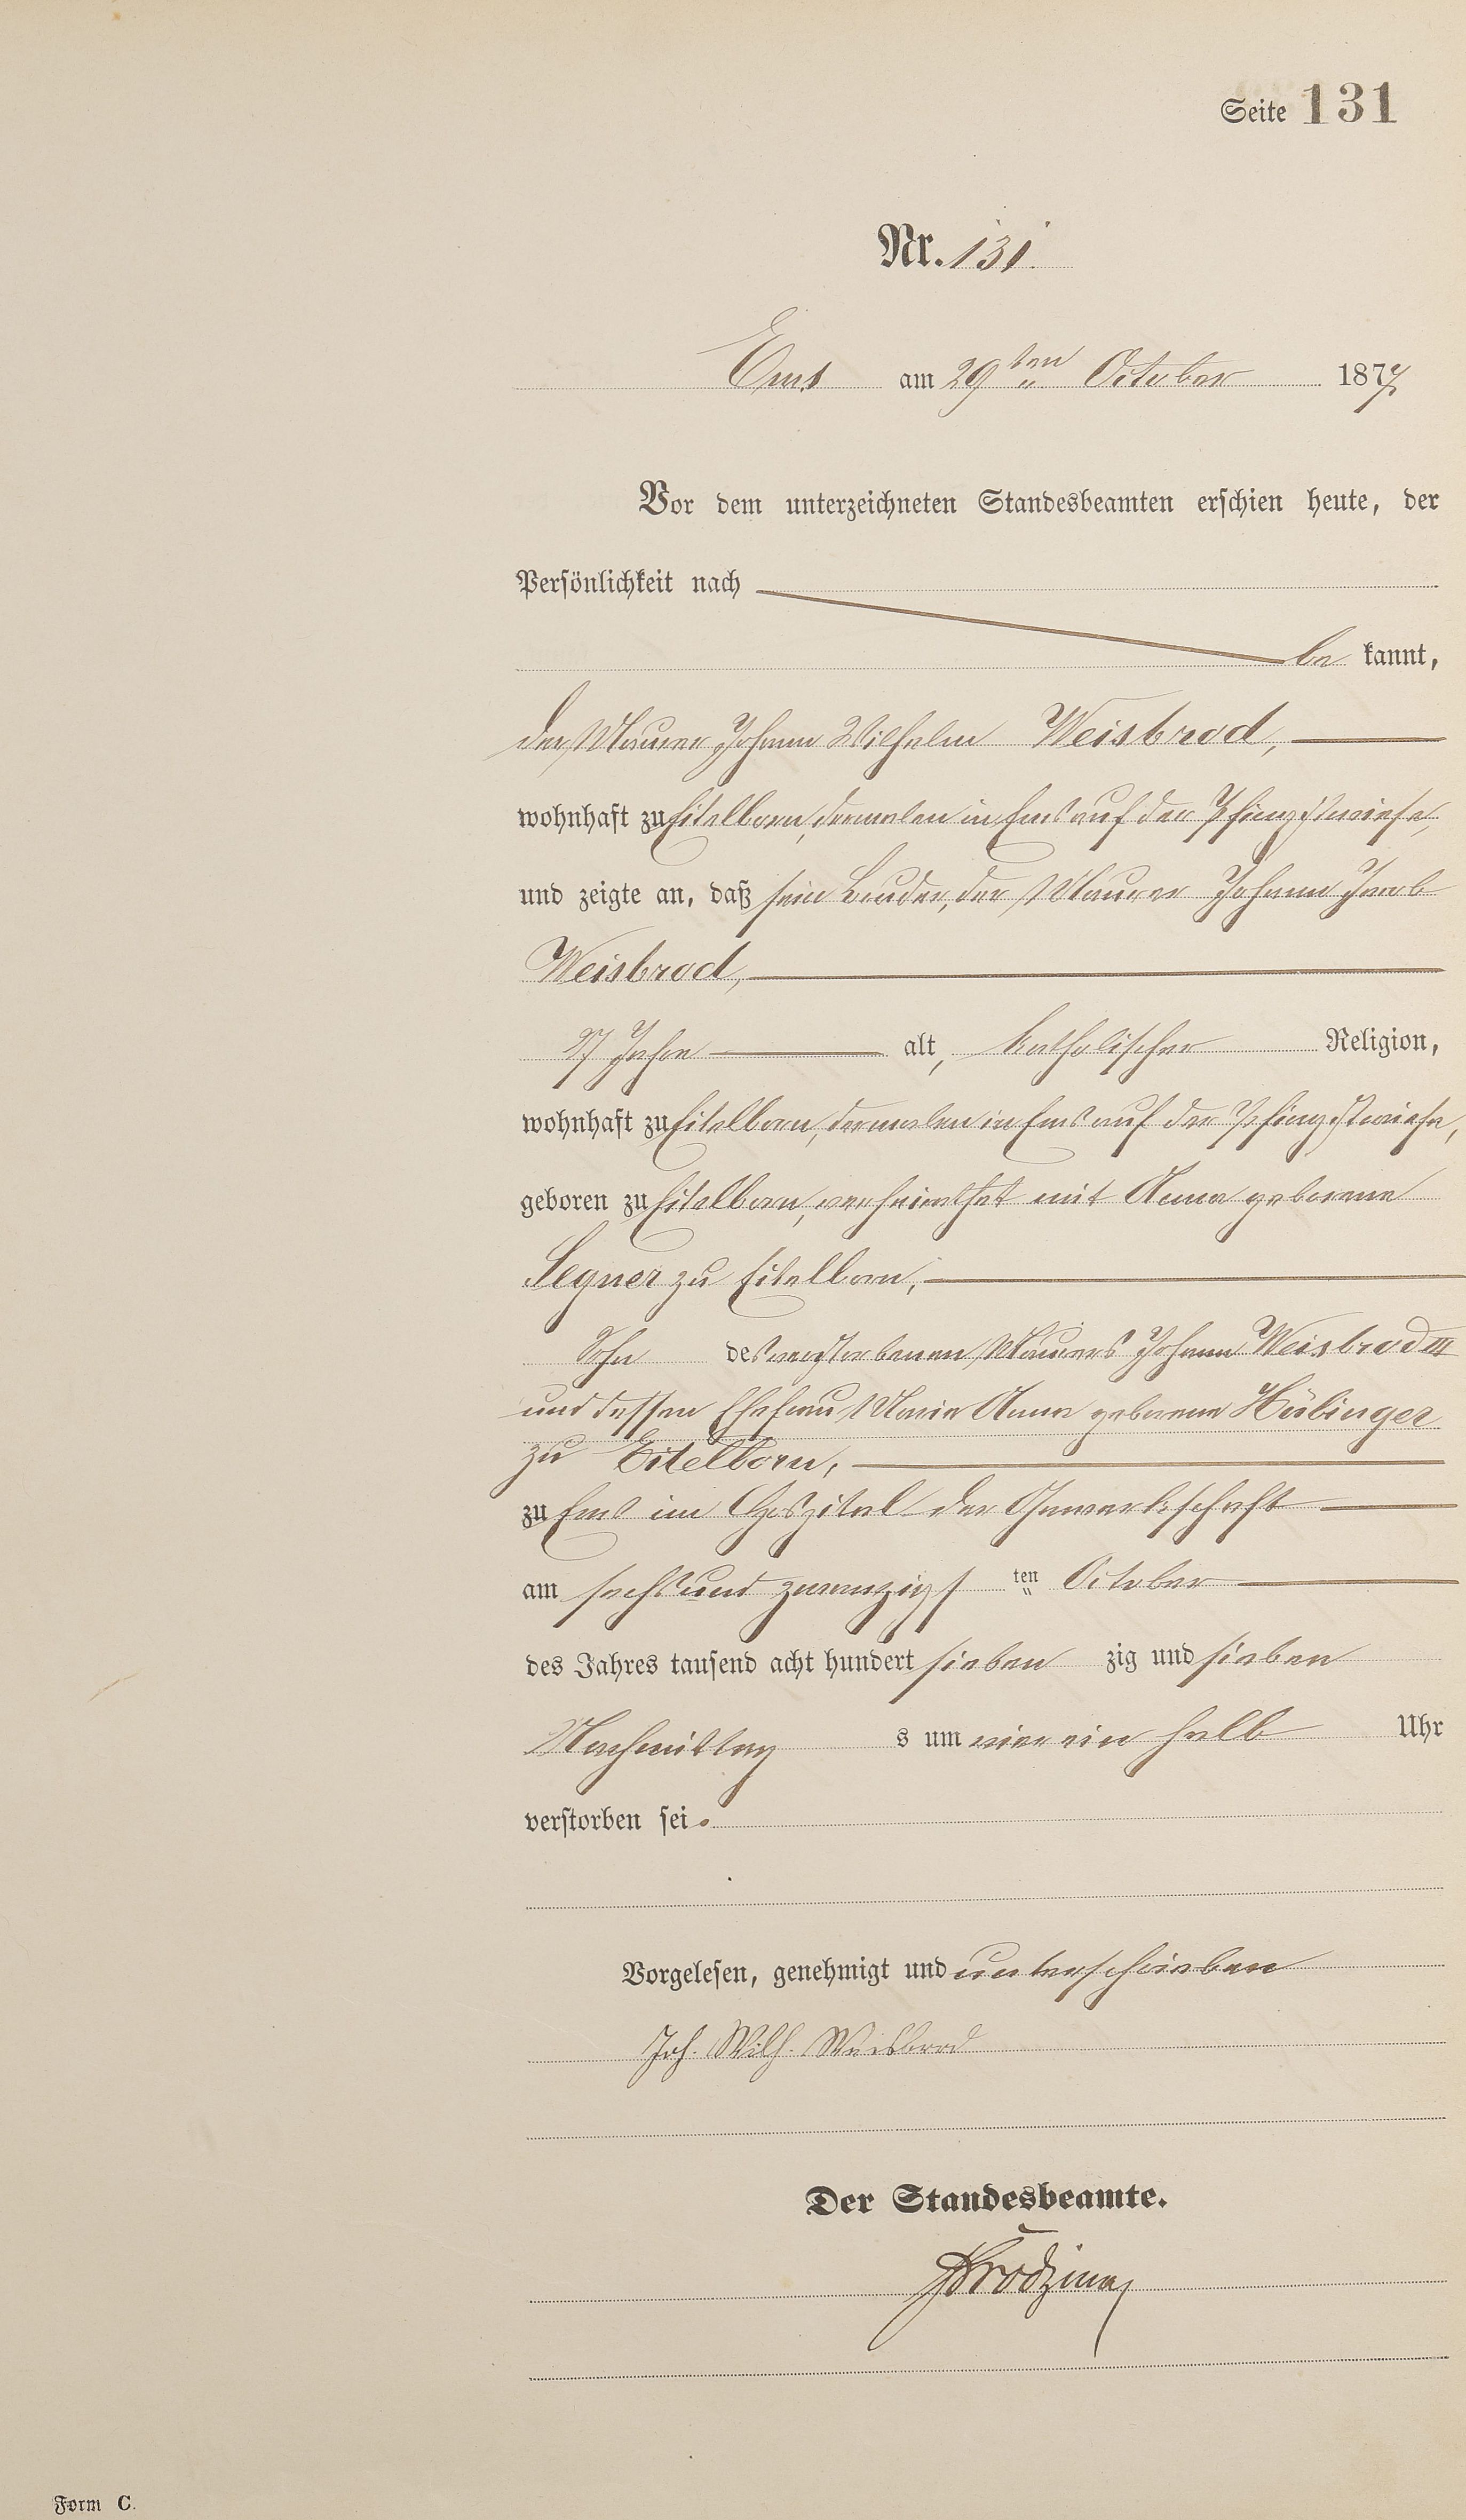 Seite 131
Nr. 131.
Ems am 29ten October 1877
Vor dem unterzeichneten Standesbeamten erschien heute, der
Persönlichkeit nach
be kannt,
der Maurer Johann Wilhelm Weisbrod,
wohnhaft zu Eitelborn, dermalen in Ems auf der Pfingstwiese,
und zeigte an, daß sein Bruder, der Maurer Johann Jacob
Weisbrod,
27 Jahre alt, katholischer Religion,
wohnhaft zu Eitelborn, dermalen in Ems auf der Pfingstwiese,
geboren zu Eitelborn, verheirathet mit Anna geborene
Segner zu Eitelborn,
Sohn des verstorbenen Maurers Johann Weisbrod III
und dessen Ehefrau Maria Anna geborene Hübinger
zu Eitelborn,
zu Ems im Hospital der Gewerkschaft
am sechsund zwanzigs ten October
des Jahres tausend acht hundert sieben zig und sieben
Nachmittag s um vier ein halb Uhr
verstorben sei.
Vorgelesen, genehmigt und unterschrieben
Joh. Wilh. Weisbrod
Der Standesbeamte.
Form C.